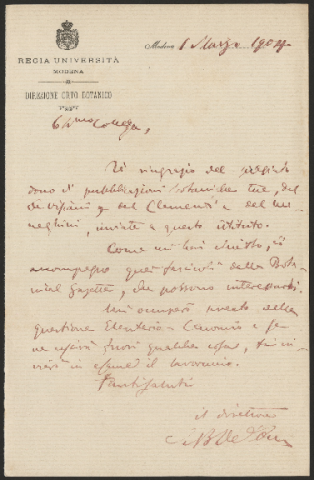 REGIA UNIVERSITÀ
MODENA
DIREZIONE ORTO BOTANICO
Modena, 1 Marzo 1904
Collega,
Ti ringrazio del
dono di pubblicazioni botaniche tue, del
e del Clementi e del Me
neghini, inviate a questo istituto.
Come mi hai
accompagno quei fascicoli della Bota
nical Gazette, che possono interessarti.
Mi occuperò presto della
questione e se
ne uscirà fuori qualche cosa, ti in
vierò in il
Tanti saluti
il direttore